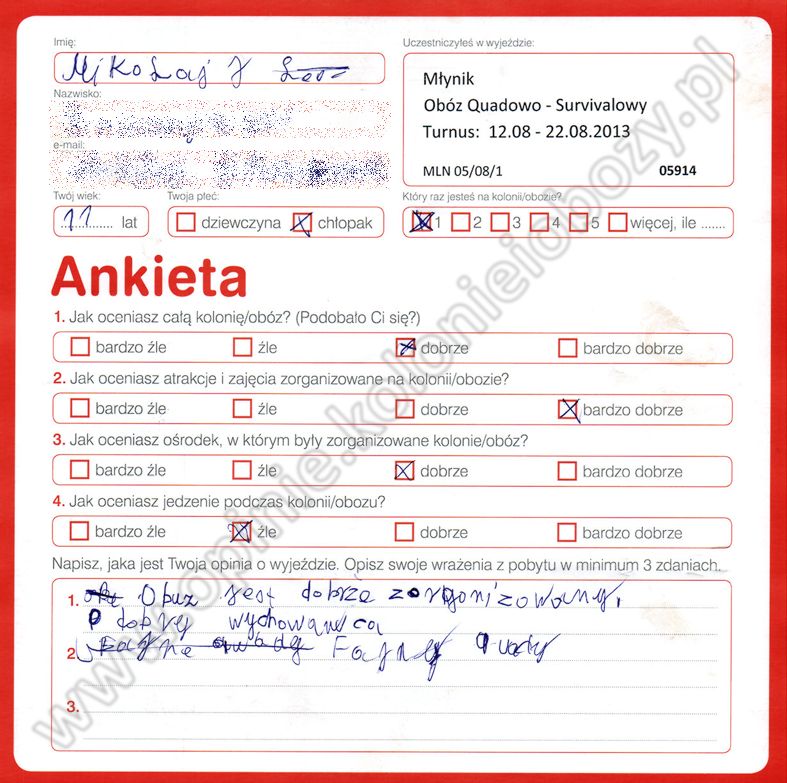 Imię:
Mikołaj J
Nazwisko:
e-mail:
Twój wiek:
11 lat
Twoja płeć:
dziewczyna chłopak
Uczestniczyłeś w wyjeździe:
Młynik
Obóz Quadowo - Survivalowy
Turnus: 12.08 - 22.08.2013
MLN 05/08/1 05914
Który raz jesteś na kolonii/obozie?
1 2 3 4 5 więcej, ile .......
Ankieta
1. Jak oceniasz całą kolonię/obóz? (Podobało Ci się?)
bardzo źle źle dobrze bardzo dobrze
2. Jak oceniasz atrakcje i zajęcia zorganizowane na kolonii/obozie?
bardzo źle źle dobrze bardzo dobrze
3. Jak oceniasz ośrodek, w którym były zorganizowane kolonie/obóz?
bardzo źle źle dobrze bardzo dobrze
4. Jak oceniasz jedzenie podczas kolonii/obozu?
bardzo źle źle dobrze bardzo dobrze
Napisz, jaka jest Twoja opinia o wyjeździe. Opisz swoje wrażenia z pobytu w minimum 3 zdaniach.
1. Obuz jest dobrze zorganizowany,
dobry wychowawca
2. Fajne quady Fajny quady
3.
www.opinie.kolonieiobozy.pl